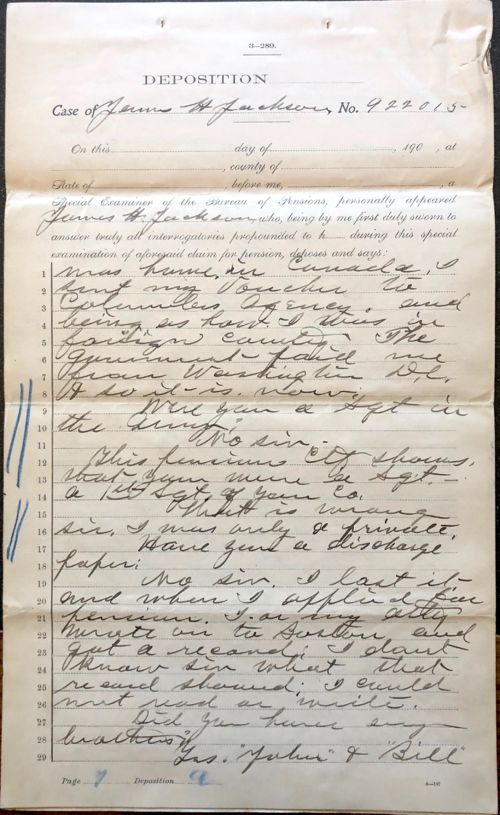 3—280.
DEPOSITION
Case of James H Jackson, No. 922015
On this day of , 190 , at
, county of
State of , before me, , a
Special Examiner of the Bureau of Pensions, personally appeared
James H. Jackson, who, being by me first duly sworn to
answer truly all interrogatories propounded to h during this special
examination of aforesaid claim for pension, deposes and says:
1 was home in Canada. I
2 sent my Voucher to
3 Columbus Agency. and
4 being as how I was in
5 foreign County. The
6 Government paid me
7 from Washington D.C.
8 & so it is now.
9 Were you a Sgt in
10 the army?
11 No sir.-
12 This pensions Ctf shows,
13 that you were a Sgt.-
14 a 1st Sgt. of your Co.
15 That is wrong
16 sir. I was only a private.
17 Have you a discharge
18 paper;
19 No sir. I lost it-
20 and when I applied for
21 pension. I or my atty
22 wrote on to Boston and
23 got a record; I dont
24 know sir what that
25 record showed; I could
26 not read or write.
27 Did you have any
28 brothers"?
29 Yes. "John" & "Bill"
Page 7 Deposition a